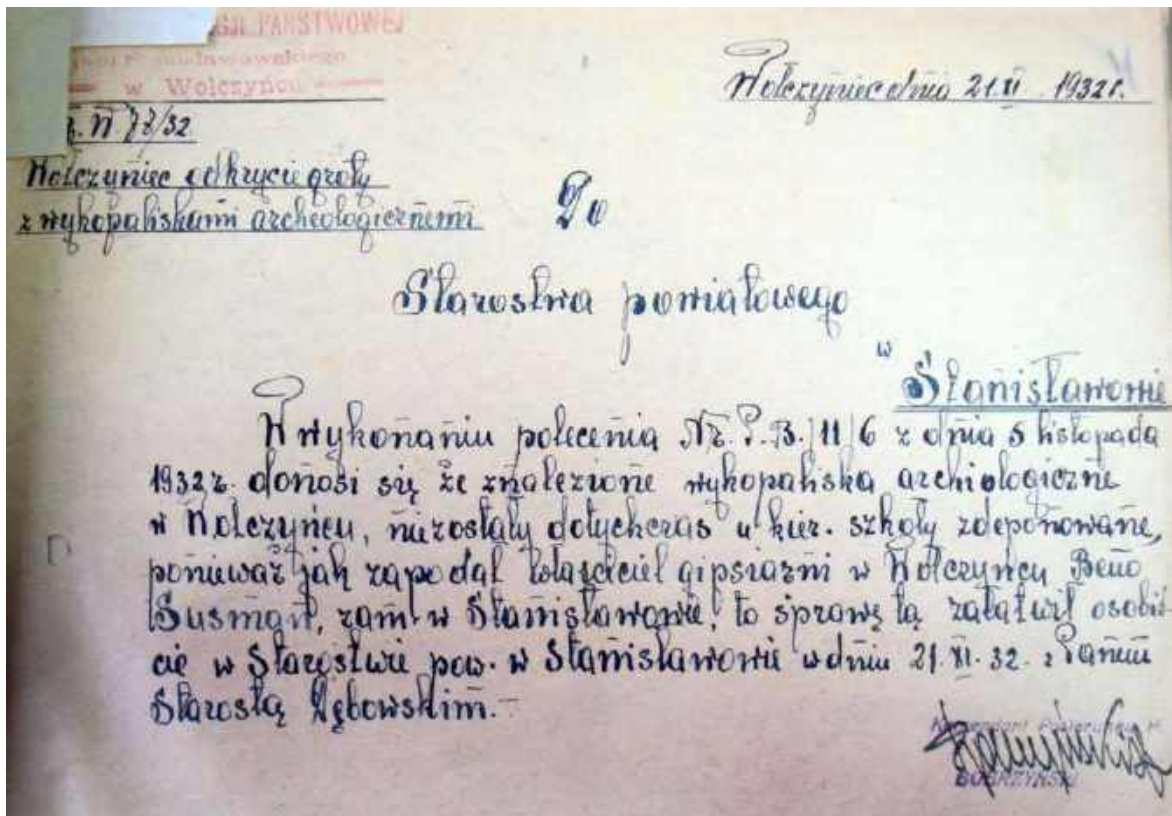 PAŃSTWOWEJ
w Wołczyńcu
Wołczyniec dnia 21.XI 1932r.
/32
Wołczyniec odkrycie groty
z wykopaliskami archeologicznemi
Do
Starostwa powiatowego
w
Stanisławowie
W wykonaniu polecenia Nr. P.B./11/6 z dnia 5 listopada
1932 r. donosi się że znalezione wykopaliska archiologiczne
w Wołczyńcu, niezostały dotychczas u kier. szkoły zdeponowane,
ponieważ jak zapodał właściciel gipsiarni w Wołczyńcu Beno
Susman, zam. w Stanisławowie, to sprawę tą załatwił osobiś
cie w Starostwie pow. w Stanisławowie w dniu 21.XI.32. z Panem
Starostą Dębowskim.-
Komendant Posterunku
DOBRZYŃSKI